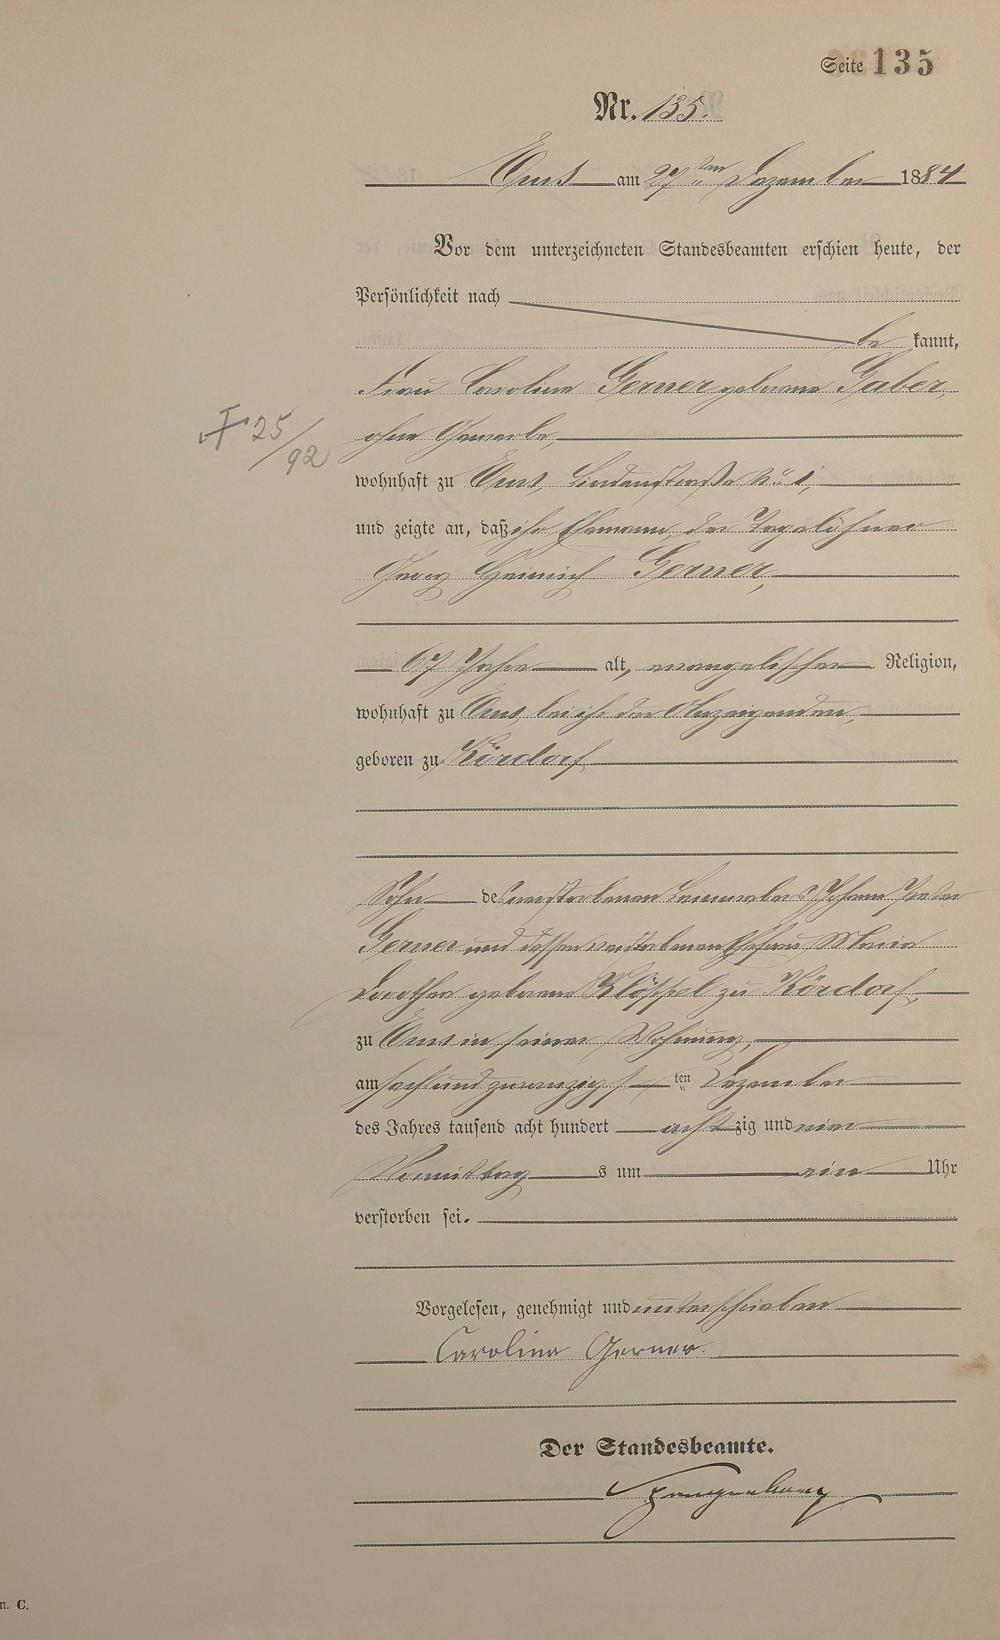 Seite 135
Nr. 135.
Ems am 27ten Dezember 1884
Vor dem unterzeichneten Standesbeamten erschien heute, der
Persönlichkeit nach
be kannt,
Frau Caroline Gerner geborene Gaber,
ohne Gewerbe,
25/92
wohnhaft zu Ems, Lindenstraße No 1,
und zeigte an, daß ihr Ehemann, der Tagelöhner
Georg Heinrich Gerner,
67 Jahre alt, evangelischer Religion,
wohnhaft zu Ems, bei ihr der Anzeigenden,
geboren zu Kördorf
Sohn des verstorbenen Leinwebers Johann Peter
Gerner und dessen verstorbenen Ehefrau Maria
Dorothea geborene Klöppel zu Kördorf,
zu Ems in seiner Wohnung,
am sechsundzwanzigs ten Dezember
des Jahres tausend acht hundert acht zig und vier
Vormittag s um ein Uhr
verstorben sei.
Vorgelesen, genehmigt und unterschrieben
Carolina Gerner.
Der Standesbeamte.
Spangenberg
n. C.